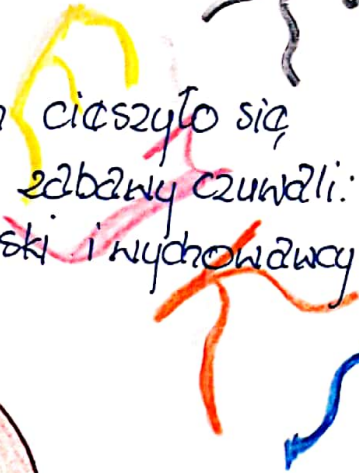 cieszyło się
zabawy czuwali:
ski i wychowawcy